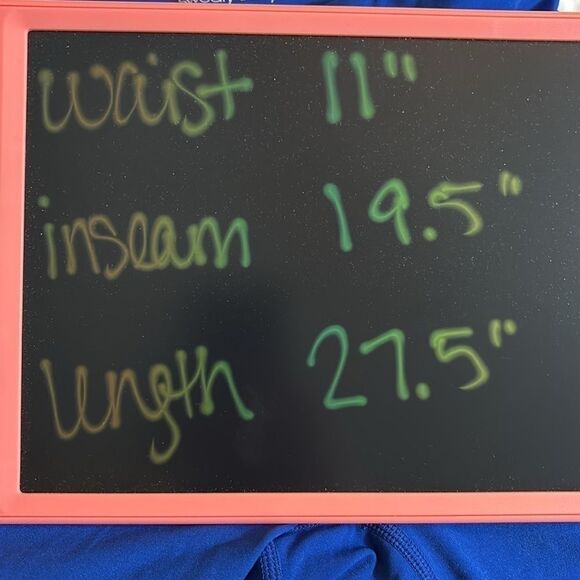 waist 11"
inseam 19.5"
length 27.5"